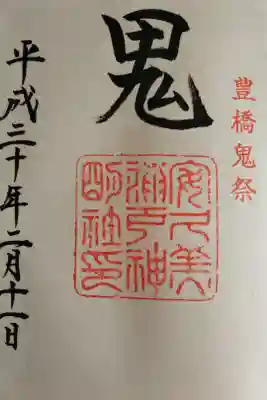 豊橋鬼祭
鬼
安久美
神戸神
明社印
平成三十年二月十一日